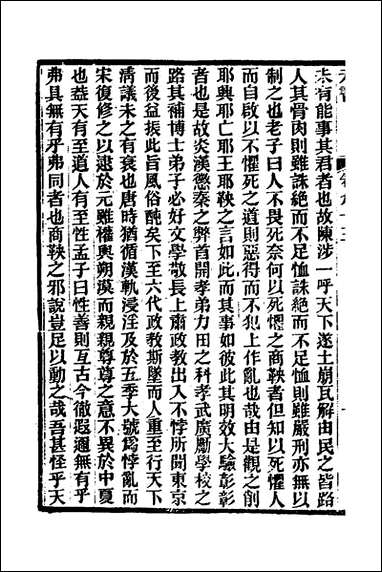 未有能事其君者也故陳涉一呼天下遂土崩瓦解由民之皆路
人其骨肉則雖誅絶而不足恤誅絶而不足恤則雖嚴刑亦無以
制之也老子曰人不畏死奈何以死懼之商鞅者但知以死懼人
而自啟以不懼死之道則惡得而不犯上作亂也哉由是觀之創
耶興耶亡耶王耶鞅之言如此而其事如彼此其明效大驗彰彰
者也是故炎漢懲秦之弊首開孝弟力田之科孝武廣勵學校之
路其補博士弟子必好文學敬長上肅政教出入不悖所聞東京
而後益振此旨風俗醇矣下至六代政教斯墜而人重至行天下
清議未之有衰也唐時猶循漢軌浸淫及於五季大號爲悖亂而
宋復修之以逮於元雖權輿朔漠而親親尊尊之意不異於中夏
也葢天有至道人有至性孟子曰性善則亙古今徹遐邇無有乎
弗具無有乎弗同者也商鞅之邪說豈足以動之哉吾甚怪乎天